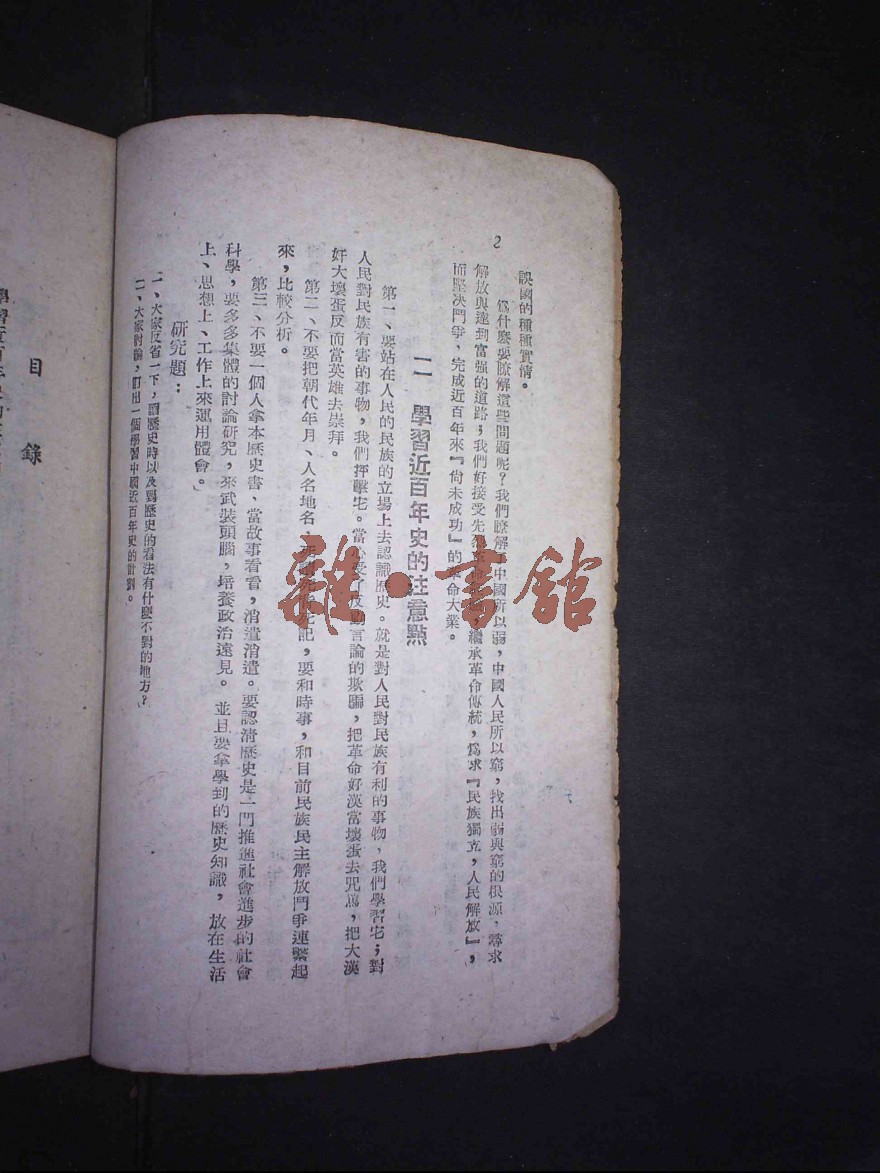 2
誤國的種種實情。
爲什麽要瞭解這些問題呢？我們瞭解了中國所以弱，中國人民所以窮，找出弱與窮的根源，尋求
解放與達到富强的道路；我們好接受先烈革命，繼承革命傳統，爲求『民族獨立，人民解放』，
而堅决鬥爭，完成近百年來『尙未成功』的革命大業。
二　學習近百年史的注意點
第一、要站在人民的民族的立場上去認識歷史。就是對人民對民族有利的事物，我們學習它；對
人民對民族有害的事物，我們抨擊它。當心受了反動言論的欺騙，把革命好漢當壞蛋去咒駡，把大漢
奸大壞蛋反而當英雄去崇拜。
第二、不要把朝代年月、人名地名，死記，要和時事，和目前民族民主解放鬥爭連繫起
來，比較分析。
第三、不要一個人拿本歷史書、當故事看看，消遣消遣。要認清歷史是一門推進社會進步的社會
科學，要多多集體的討論研究，來武裝頭腦，培養政治遠見。並且要拿學到的歷史知識，放在生活
上、思想上、工作上來運用體會。
研究題：
一、大家反省一下，讀歷史時以及對歷史的看法有什麽不對的地方？
二、大家討論，訂出一個學習中國近百年史的計劃。
目錄
雜·書館